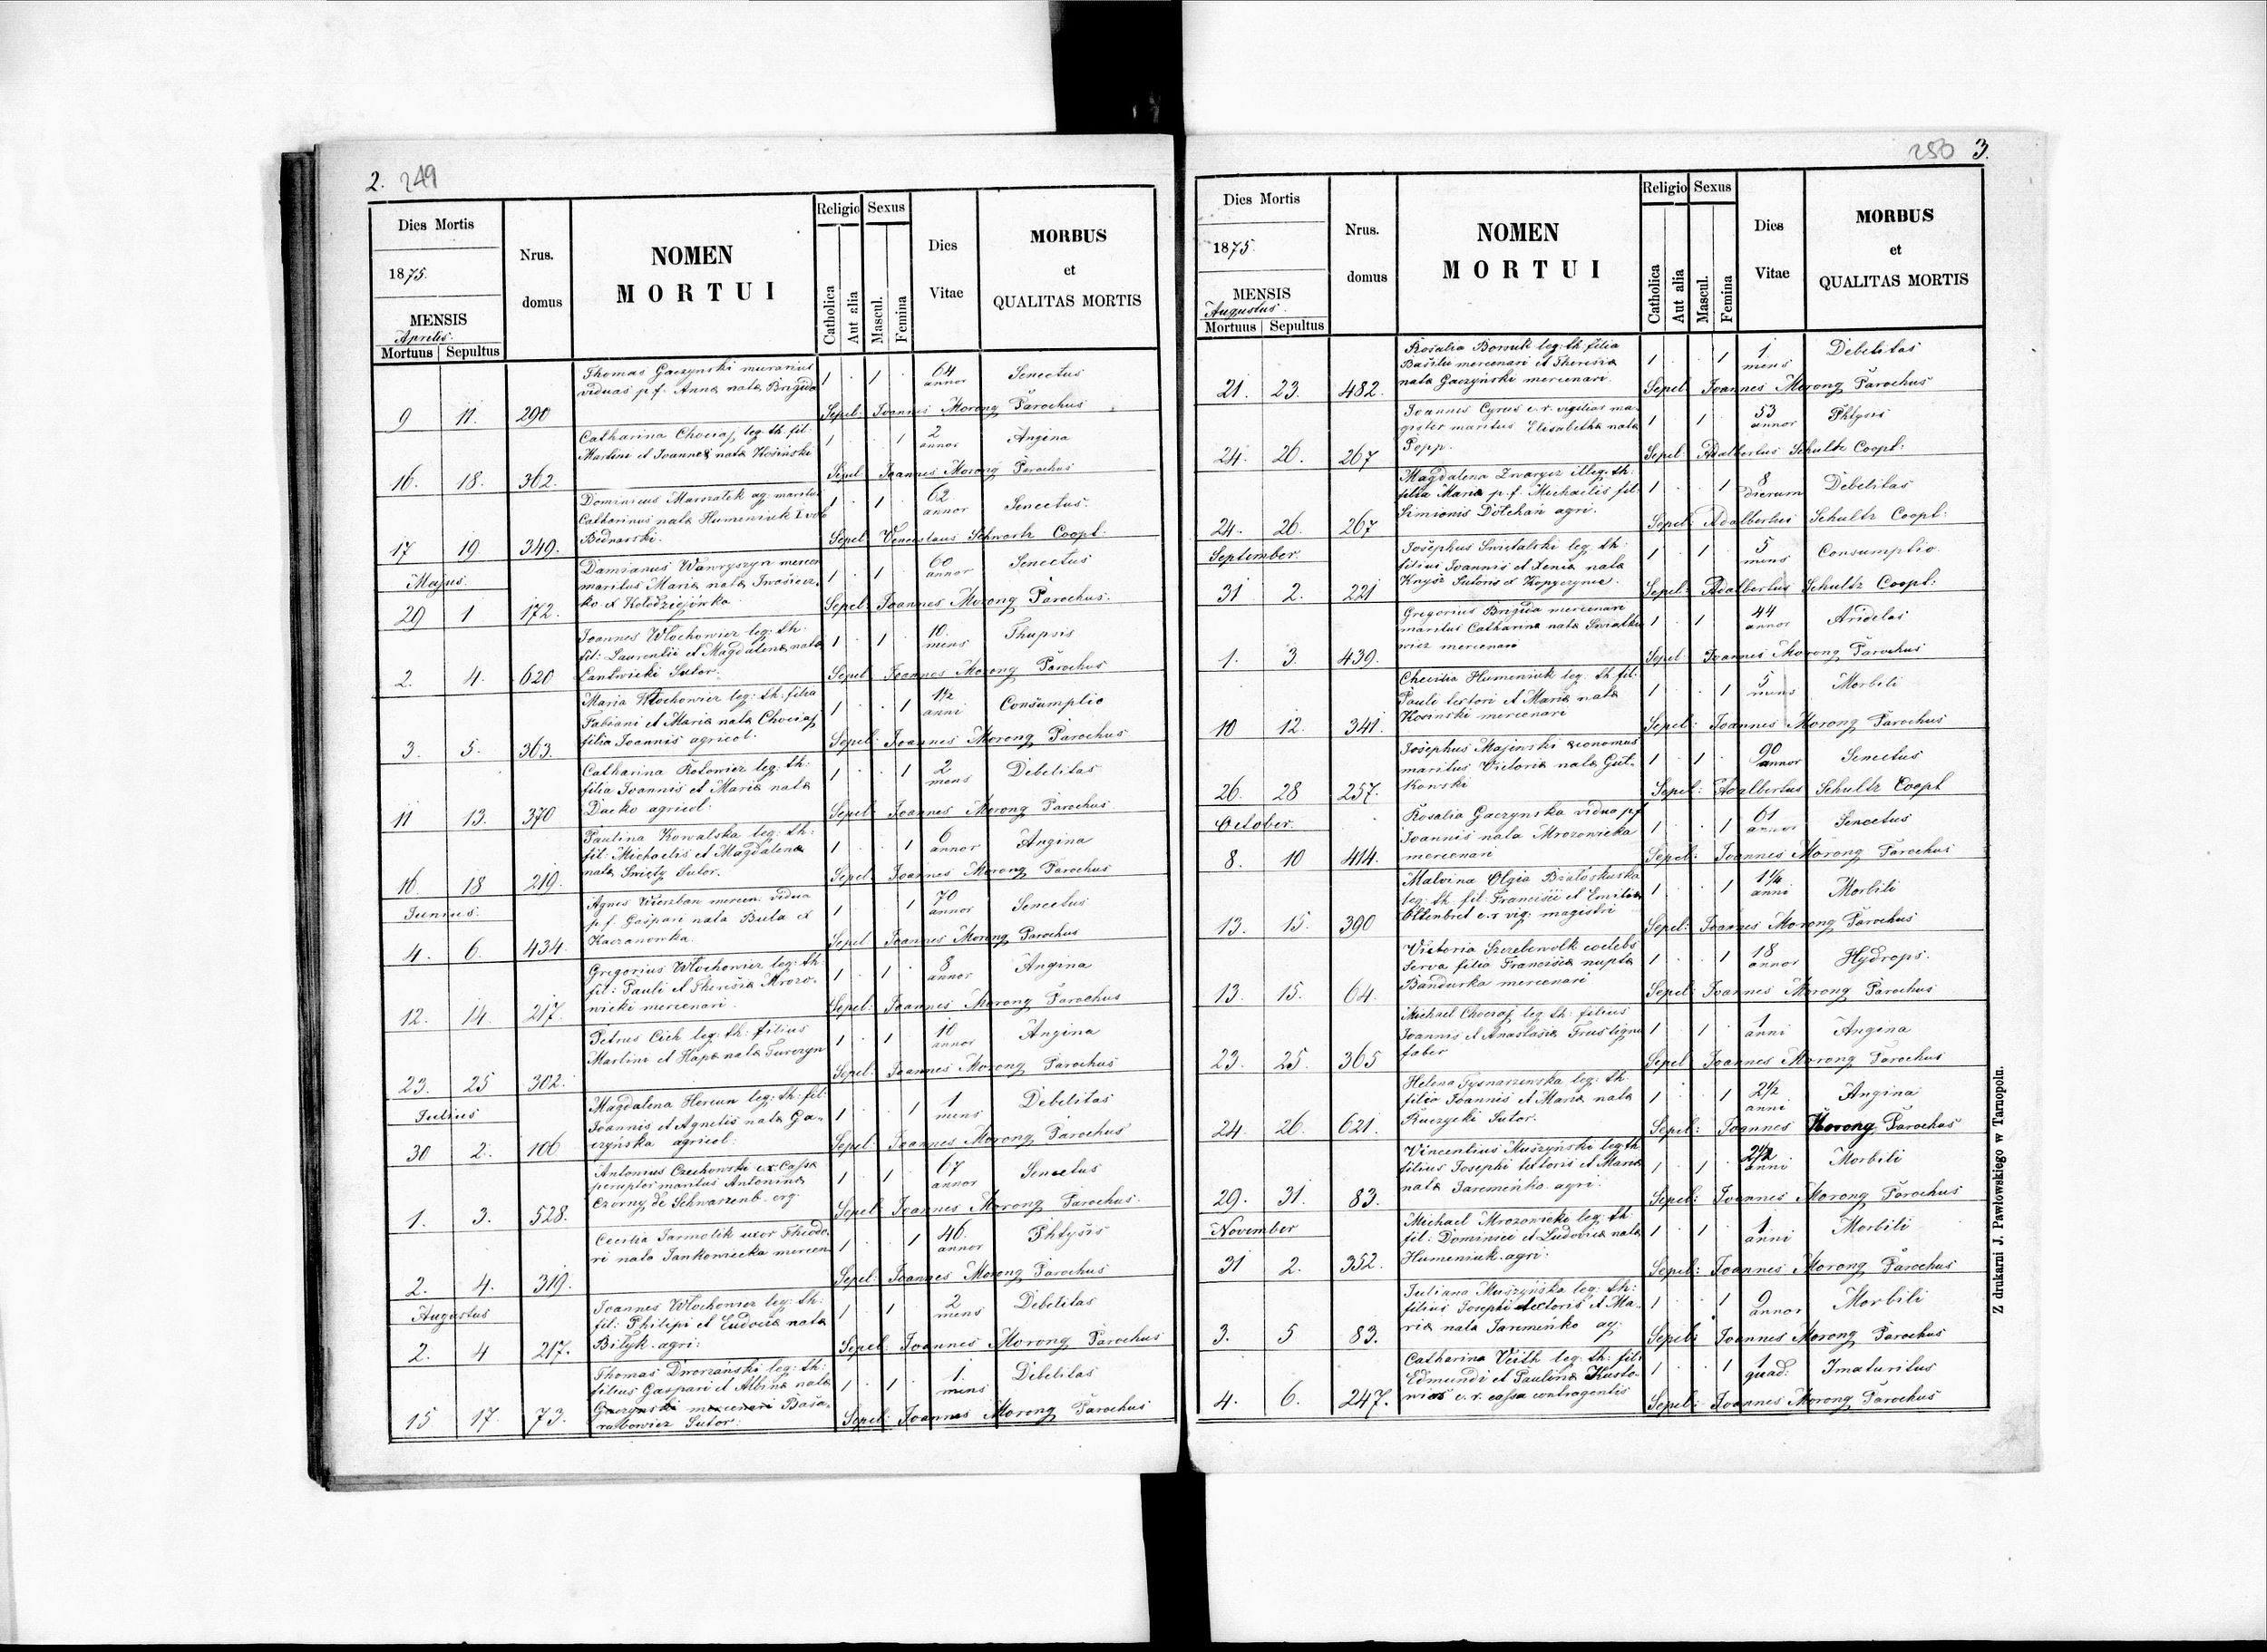 2. 249
Dies Mortis
1875.
MENSIS
Aprilis.
Mortuus Sepultus
Nrus.
domus
NOMEN
MORTUI
Religio Sexus
Catholica
Aut alia
Mascul.
Femina
Dies
Vitae
MORBUS
et
QUALITAS MORTIS
Thomas Gaczynski murarius
viduus p.f. Anna nata Brigida
1 . 1 . 64 annor Senectus
9 11. 290 Sepel: Joannes Morong Parochus
Catharina Chociaj leg. th. fil:
Martini et Joanna nata Kosinski
1 . . 1 2 annor Angina
16. 18. 362. Sepel Joannes Morong Parochus
Dominicus Marszałek ag. maritus
Catharinus nata Humeniuk I voto
Bednarski.
1 . 1 . 62. annor Senectus.
17 19 349. Sepel Venceslaus Schwartz Coopt.
Majus.
Damianus Wawryszyn mercen
maritus Maria nata
ko x Kołodziejówka
1 . 1 . 60 annor Senectus
29 1 172. Sepel Joannes Morong Parochus.
Joannes Włochowicz leg: th:
fil: Laurentii et Magdalena nata
Lantwicki Sutor.
1 . 1 . 10. mens Thupsis
2. 4. 620 Sepel Joannes Morong Parochus
Maria Włochowicz leg: th. filia
Fabiani et Maria nata Chociaj
filia Joannis agricol.
1 . . 1 1½ anni Consumptio
3. 5. 363. Sepel: Joannes Morong Parochus
Catharina Kotowicz leg: th:
filia Joannis et Maria nata
Dacko agricol:
1 . . 1 2 mens Debelitas
11 13. 370 Sepel: Joannes Morong Parochus
Paulina Kowalska leg: th:
fil: Michaelis et Magdalena
nata Święty Sutor.
1 . . 1 6 annor Angina
16. 18 219. Sepel: Joannes Morong Parochus
Junius.
Agnes Wierzban mercen. vidua
p.f. Gaspari nata Buta x
Kaczanowka.
1 . . 1 70 annor Senectus
4. 6. 434. Sepel Joannes Morong Parochus
Gregorius Włochowicz leg: th:
fil: Pauli et Theresia Mrozo-
wicki mercenari.
1 . 1 . 8 annor Angina
12. 14. 217. Sepel: Joannes Morong Parochus
Petrus Cich leg: th: filius
Martini et Hapa nata Turczyn
1 . 1 . 10 annor Angina
23. 25 302. Sepel: Joannes Morong Parochus
Julius
Magdalena Hercun leg: th: fil:
Joannis et Agnetis nata Ga-
czyńska agricol:
1 . . 1 1 mens Debelitas
30 2. 106 Sepel: Joannes Morong Parochus
Antonius Czechowski ex: Cassa
peruptor maritus Antonina
Czorny de Schwarzenb. erg.
1 . 1 . 67 annor Senectus
1. 3. 528. Sepel: Joannes Morong Parochus.
Cecilia Jarmolik uxor Theodo-
ri nata Jankowiecka mercen
1 . . 1 46. annor Phtysis
2. 4. 319. Sepel: Joannes Morong Parochus
Augustus
Joannes Włochowicz leg: th:
fil: Philipi et Eudocia nata
Bilyk. agri:
1 . 1 . 2 mens Debelitas
2. 4 217. Sepel: Joannes Morong Parochus
Thomas Dworzański leg: th:
filius Gaspari et Albina nata
Gaczynski mercenari Basa-
rabowicz Sutor:
1 . 1 . 1. mens Debelitas
15 17. 73. Sepel: Joannes Morong Parochus
250 3.
Dies Mortis
1875.
MENSIS
Augustus.
Mortuus Sepultus
Nrus.
domus
NOMEN
MORTUI
Religio Sexus
Catholica
Aut alia
Mascul.
Femina
Dies
Vitae
MORBUS
et
QUALITAS MORTIS
Rosalia Borsuk leg: th. filia
Basilii mercenari et Theresia
nata Gaczyński mercenari.
1 . . 1 1. mens Debelitas
21. 23. 482. Sepel Joannes Morong Parochus
Joannes Cyrus c.r. vigilias ma-
gister maritus Elisabetha nata
Popp.
1 . 1 . 53 annor Phtysis
24. 26. 267 Sepel Adalbertus Schultz Coopt:
Magdalena Zwarycz illeg. th.
filia Maria p.f. Michaelis fil:
Simionis Dołchań agri.
1 . . 1 8 dierum Debelitas
24. 26 267 Sepel: Adalbertus Schultz Coopt:
September.
Josephus Swistalski leg: th:
filius Joannis et Xenia nata
Knysz Sutoris x Kopyczyne.
1 . 1 . 5 mens Consumptio
31 2. 221 Sepel: Adalbertus Schultz Coopt:
Gregorius Brigida mercenari
maritus Catharina nata Swiatko
wicz mercenari
1 . 1 . 44 annor Aridelas
1. 3. 439. Sepel Joannes Morong Parochus
Checilia Humeniuk leg: th fil:
Pauli textori et Maria nata
Kosinski mercenari
1 . . 1 5 mens Morbili
10 12. 341. Sepel: Joannes Morong Parochus
Josephus Majewski economus
maritus Victoria nata Gut-
kowski
1 . 1 . 90 annor Senectus
26. 28 257. Sepel: Adalbertus Schultz Coopt
October.
Rosalia Gaczynska vidua p.f
Joannis nata Mrozowicka
mercenari
1 . . 1 61 annor Senectus
8. 10 414. Sepel: Joannes Morong Parochus
Malvina Olgia
leg: th. fil: Francisii et Emilia
Oltenbret c.r vig: magistri
1 . . 1 1¼ anni Morbili
13. 15. 390 Sepel: Joannes Morong Parochus
Victoria Szczebewolk coelebs
Serva filia Francisca nupta
Bandurka mercenari
1 . . 1 18 annor Hydrops.
13. 15. 64. Sepel: Joannes Morong Parochus
Michael Chociaj leg: th: filius
Joannis et Anastasia Trustigna
faber
1 . 1 . 1 anni Angina
23. 25. 365 Sepel Joannes Morong Parochus
Helena Tysnarzewska leg: th.
filia Joannis et Maria nata
Kuczycki Sutor.
1 . . 1 2½ anni Angina
24. 26. 621. Sepel: Joannes Morong Parochus
Vincentius Muszyński leg: th
filius Josephi textoris et Maria
nata Jaremeńko. agri.
1 . 1 . 2½ anni Morbili
29. 31. 83. Sepel: Joannes Morong Parochus
November
Michael Mrozowicki leg: th:
fil: Dominici et Ludovica nata
Humeniuk. agri.
1 . 1 . 1 anni Morbili
31 2. 352. Sepel: Joannes Morong Parochus
Juliana Muszyńska leg: th:
filius Josephi textoris et Ma-
ria nata Jaremeńko ag:
1 . . 1 9 annor Morbili
3. 5 83. Sepel: Joannes Morong Parochus
Catharina Veith leg: th: fil:
Edmundi et Paulina Kusto-
wicz c.r. cassa contragentis
1 . . 1 1 quad: Imaturitus
4. 6. 247. Sepel: Joannes Morong Parochus
Z drukarni J. Pawłowskiego w Tarnopolu.